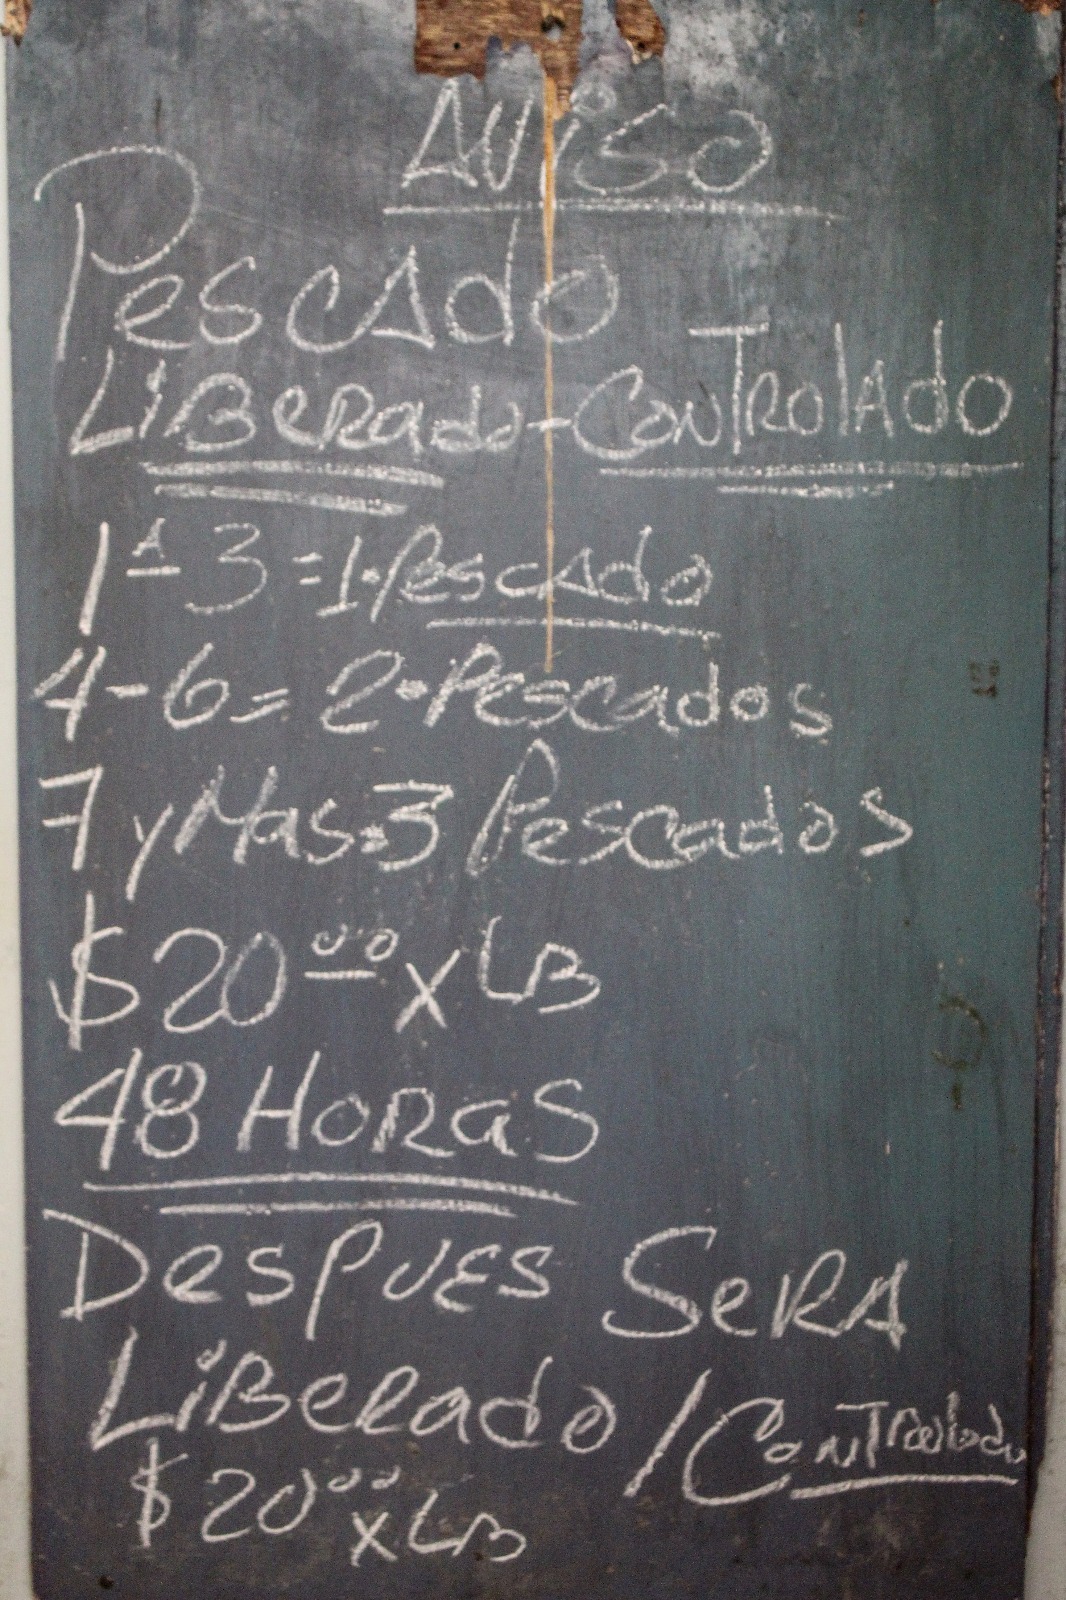 Aviso
Pescado
Liberado-Controlado
1 A 3 = 1. Pescado
4-6= 2. Pescados
7 y Mas=3 Pescados
$20 00 x LB
48 Horas
Despues Sera
Liberado / Controlado
$20 00 x LB